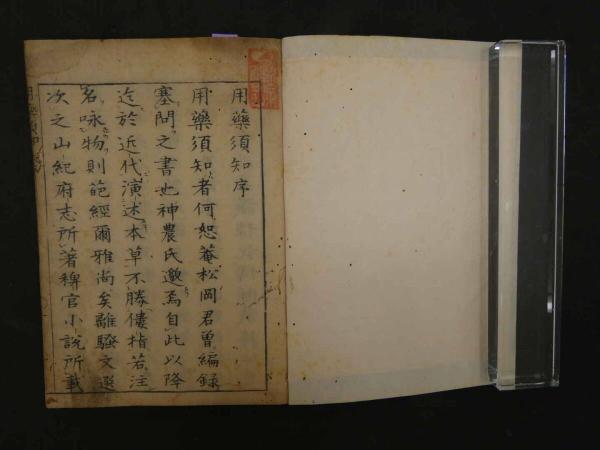 用藥須知序
用藥須知者何恕菴松岡君曽編録
塞問之書也神農氏邈焉自此以降
迄於近代演述本草不勝僂指若注
名咏物則葩經爾雅尚矣離騷文選
次之山紀府志所著稗官小說所載